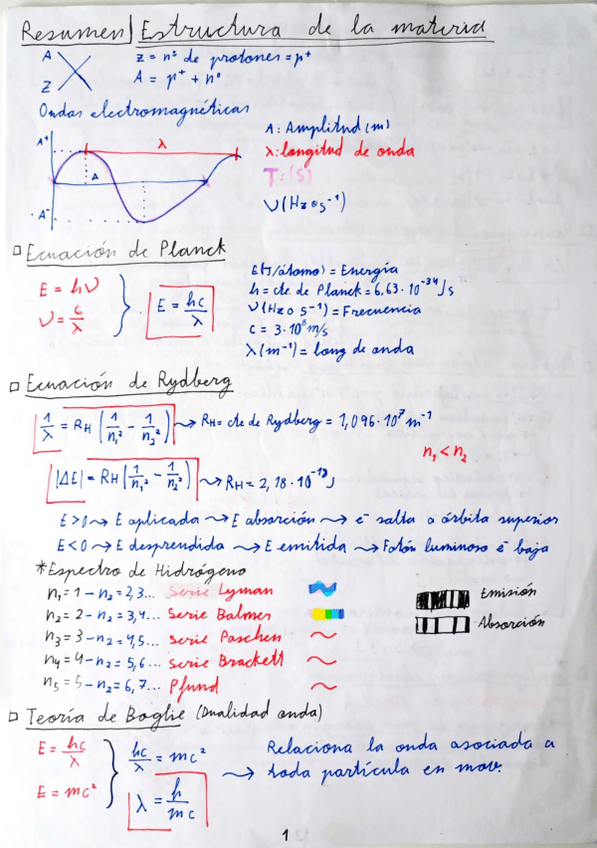 Resumen | Estructura de la materia
A
Z
X
Z = nº de protones = p⁺
A = p⁺ + n⁰
Ondas electromagnéticas
A⁺
λ
A
-A⁻
A: Amplitud (m)
λ: longitud de onda
T: (s)
ν (Hz o s⁻¹)
Ecuación de Planck
E = hν
ν = c/λ
E = hc/λ
E (J/átomo) = Energía
h = cte. de Planck = 6,63·10⁻³⁴ J s
ν (Hz o s⁻¹) = Frecuencia
c = 3·10⁸ m/s
λ (m⁻¹) = long de onda
Ecuación de Rydberg
1/λ = RH (1/n₁² - 1/n₂²) → RH = cte de Rydberg = 1,096·10⁷ m⁻¹
n₁ < n₂
|ΔE| = RH (1/n₁² - 1/n₂²) → RH = 2,18·10⁻¹⁸ J
E>0 → E aplicada → E absorción → e⁻ salta a órbita superior
E<0 → E desprendida → E emitida → Fotón luminoso e⁻ baja
*Espectro de Hidrógeno
n₁ = 1 - n₂ = 2,3... Serie Lyman
n₂ = 2 - n₂ = 3,4... Serie Balmer
n₃ = 3 - n₂ = 4,5... Serie Paschen
n₄ = 4 - n₂ = 5,6... Serie Brackett
n₅ = 5 - n₂ = 6,7... Pfund
Emisión
Absorción
Teoría de Boglie (Dualidad onda)
E = hc/λ
E = mc²
hc/λ = mc²
λ = h/mc
→ Relaciona la onda asociada a
toda partícula en mov.
1